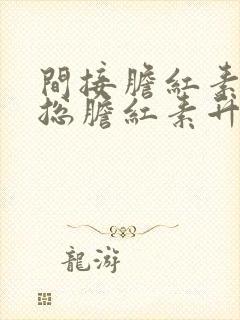 間接膽紅素
總膽紅素升
龍游